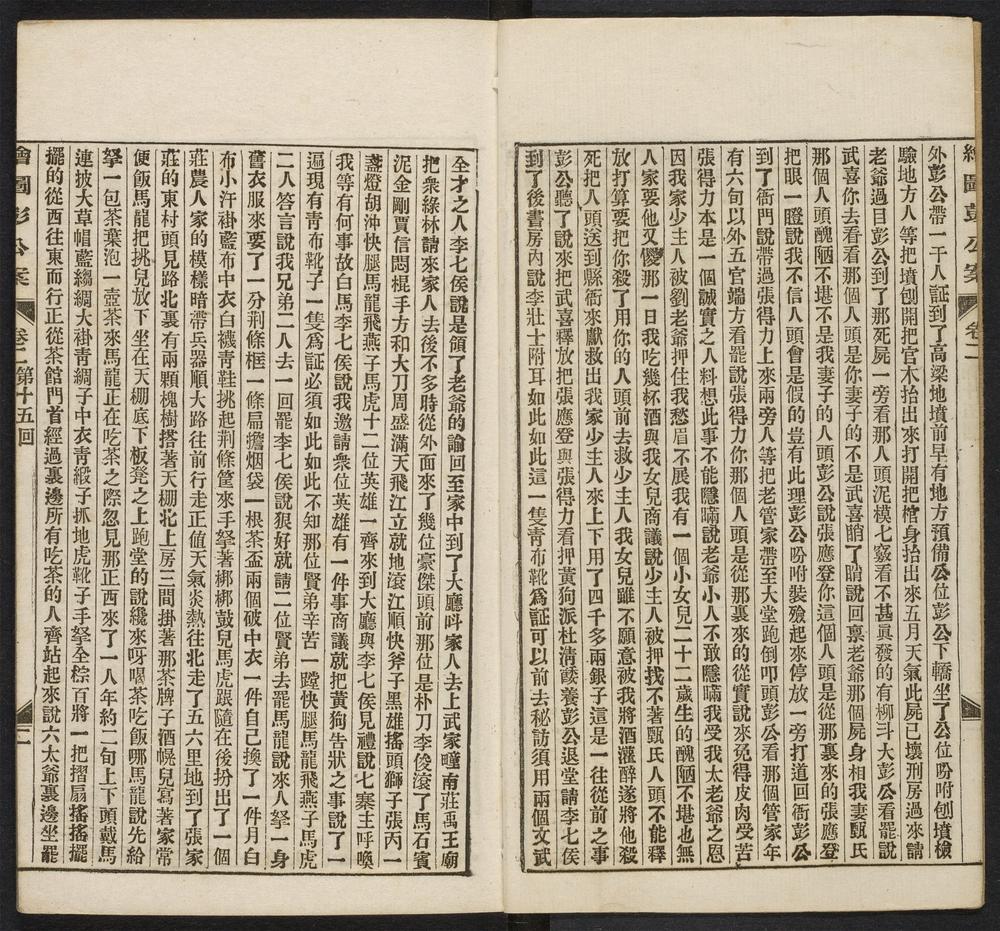 繪圖彭公案　卷二
外彭公帶一干人証到了高梁地墳前早有地方預備公位彭公下轎坐了公位吩咐刨墳檢
驗地方人等把墳刨開把官木抬出來打開把棺身抬出來五月天氣此屍已壞刑房過來請
老爺過目彭公到了那死屍一旁看那人頭泥模七竅看不甚眞發的有柳斗大彭公看罷說
武喜你去看看那個人頭是你妻子的不是武喜睄了睄說回稟老爺那個屍身相我妻甄氏
那個人頭醜陋不堪不是我妻子的人頭彭公說張應登你這個人頭是從那裏來的張應登
把眼一瞪說我不信人頭會是假的豈有此理彭公吩咐裝殮起來停放一旁打道回衙彭公
到了衙門說帶過張得力上來兩旁人等把老管家帶至大堂跑倒叩頭彭公看那個管家年
有六旬以外五官端方看罷說張得力你那個人頭是從那裏來的從實說來免得皮肉受苦
張得力本是一個誠實之人料想此事不能隱瞞說老爺小人不敢隱瞞我受我太老爺之恩
因我家少主人被劉老爺押住我愁眉不展我有一個小女兒二十二歲生的醜陋不堪也無
人家要他又儍那一日我吃幾杯酒與我女兒商議說少主人被押找不著甄氏人頭不能釋
放打算要把你殺了用你的人頭前去救少主人我女兒雖不願意被我將酒灌醉遂將他殺
死把人頭送到縣衙來獻救出我家少主人來上下用了四千多兩銀子這是一往從前之事
彭公聽了說來把武喜釋放把張應登與張得力看押黃狗派杜清餧養彭公退堂請李七侯
到了後書房內說李壯士附耳如此如此這一隻青布靴爲証可以前去秘訪須用兩個文武
全才之人李七侯說是領了老爺的諭回至家中到了大廳呌家人去上武家疃南莊禹王廟
把衆綠林請來家人去後不多時從外面來了幾位豪傑頭前那位是朴刀李俊滾了馬石賓
泥金剛賈信悶棍手方和大刀周盛滿天飛江立就地滾江順快斧子黑雄搖頭獅子張丙一
盞燈胡沖快腿馬龍飛燕子馬虎十二位英雄一齊來到大廳與李七侯見禮說七寨主呼喚
我等有何事故白馬李七侯說我邀請衆位英雄有一件事商議就把黃狗告狀之事說了一
遍現有青布靴子一隻爲証必須如此如此不知那位賢弟辛苦一蹚快腿馬龍飛燕子馬虎
二人答言說我兄弟二人去一回罷李七侯說狠好就請二位賢弟去罷馬龍說來人拏一身
舊衣服來要了一分荆條框一條扁擔烟袋一根茶盃兩個破中衣一件自己換了一件月白
布小汗褂藍布中衣白襪青鞋挑起荆條筐來手拏著梆梆鼓兒馬虎跟隨在後扮出了一個
莊農人家的模樣暗帶兵器順大路往前行走正値天氣炎熱往北走了五六里地到了張家
莊的東村頭見路北裏有兩顆槐樹搭著天棚北上房三間掛著那茶牌子酒幌兒寫著家常
便飯馬龍把挑兒放下坐在天棚底下板凳之上跑堂的說纔來呀喝茶吃飯哪馬龍說先給
拏一包茶葉泡一壺茶來馬龍正在吃茶之際忽見那正西來了一人年約二旬上下頭戴馬
連披大草帽藍縐綢大褂青綢子中衣青緞子抓地虎靴子手拏全棕百將一把摺扇搖搖擺
擺的從西往東而行正從茶館門首經過裏邊所有吃茶的人齊站起來說六太爺裏邊坐罷
繪圖彭公案　卷二第十五回　二